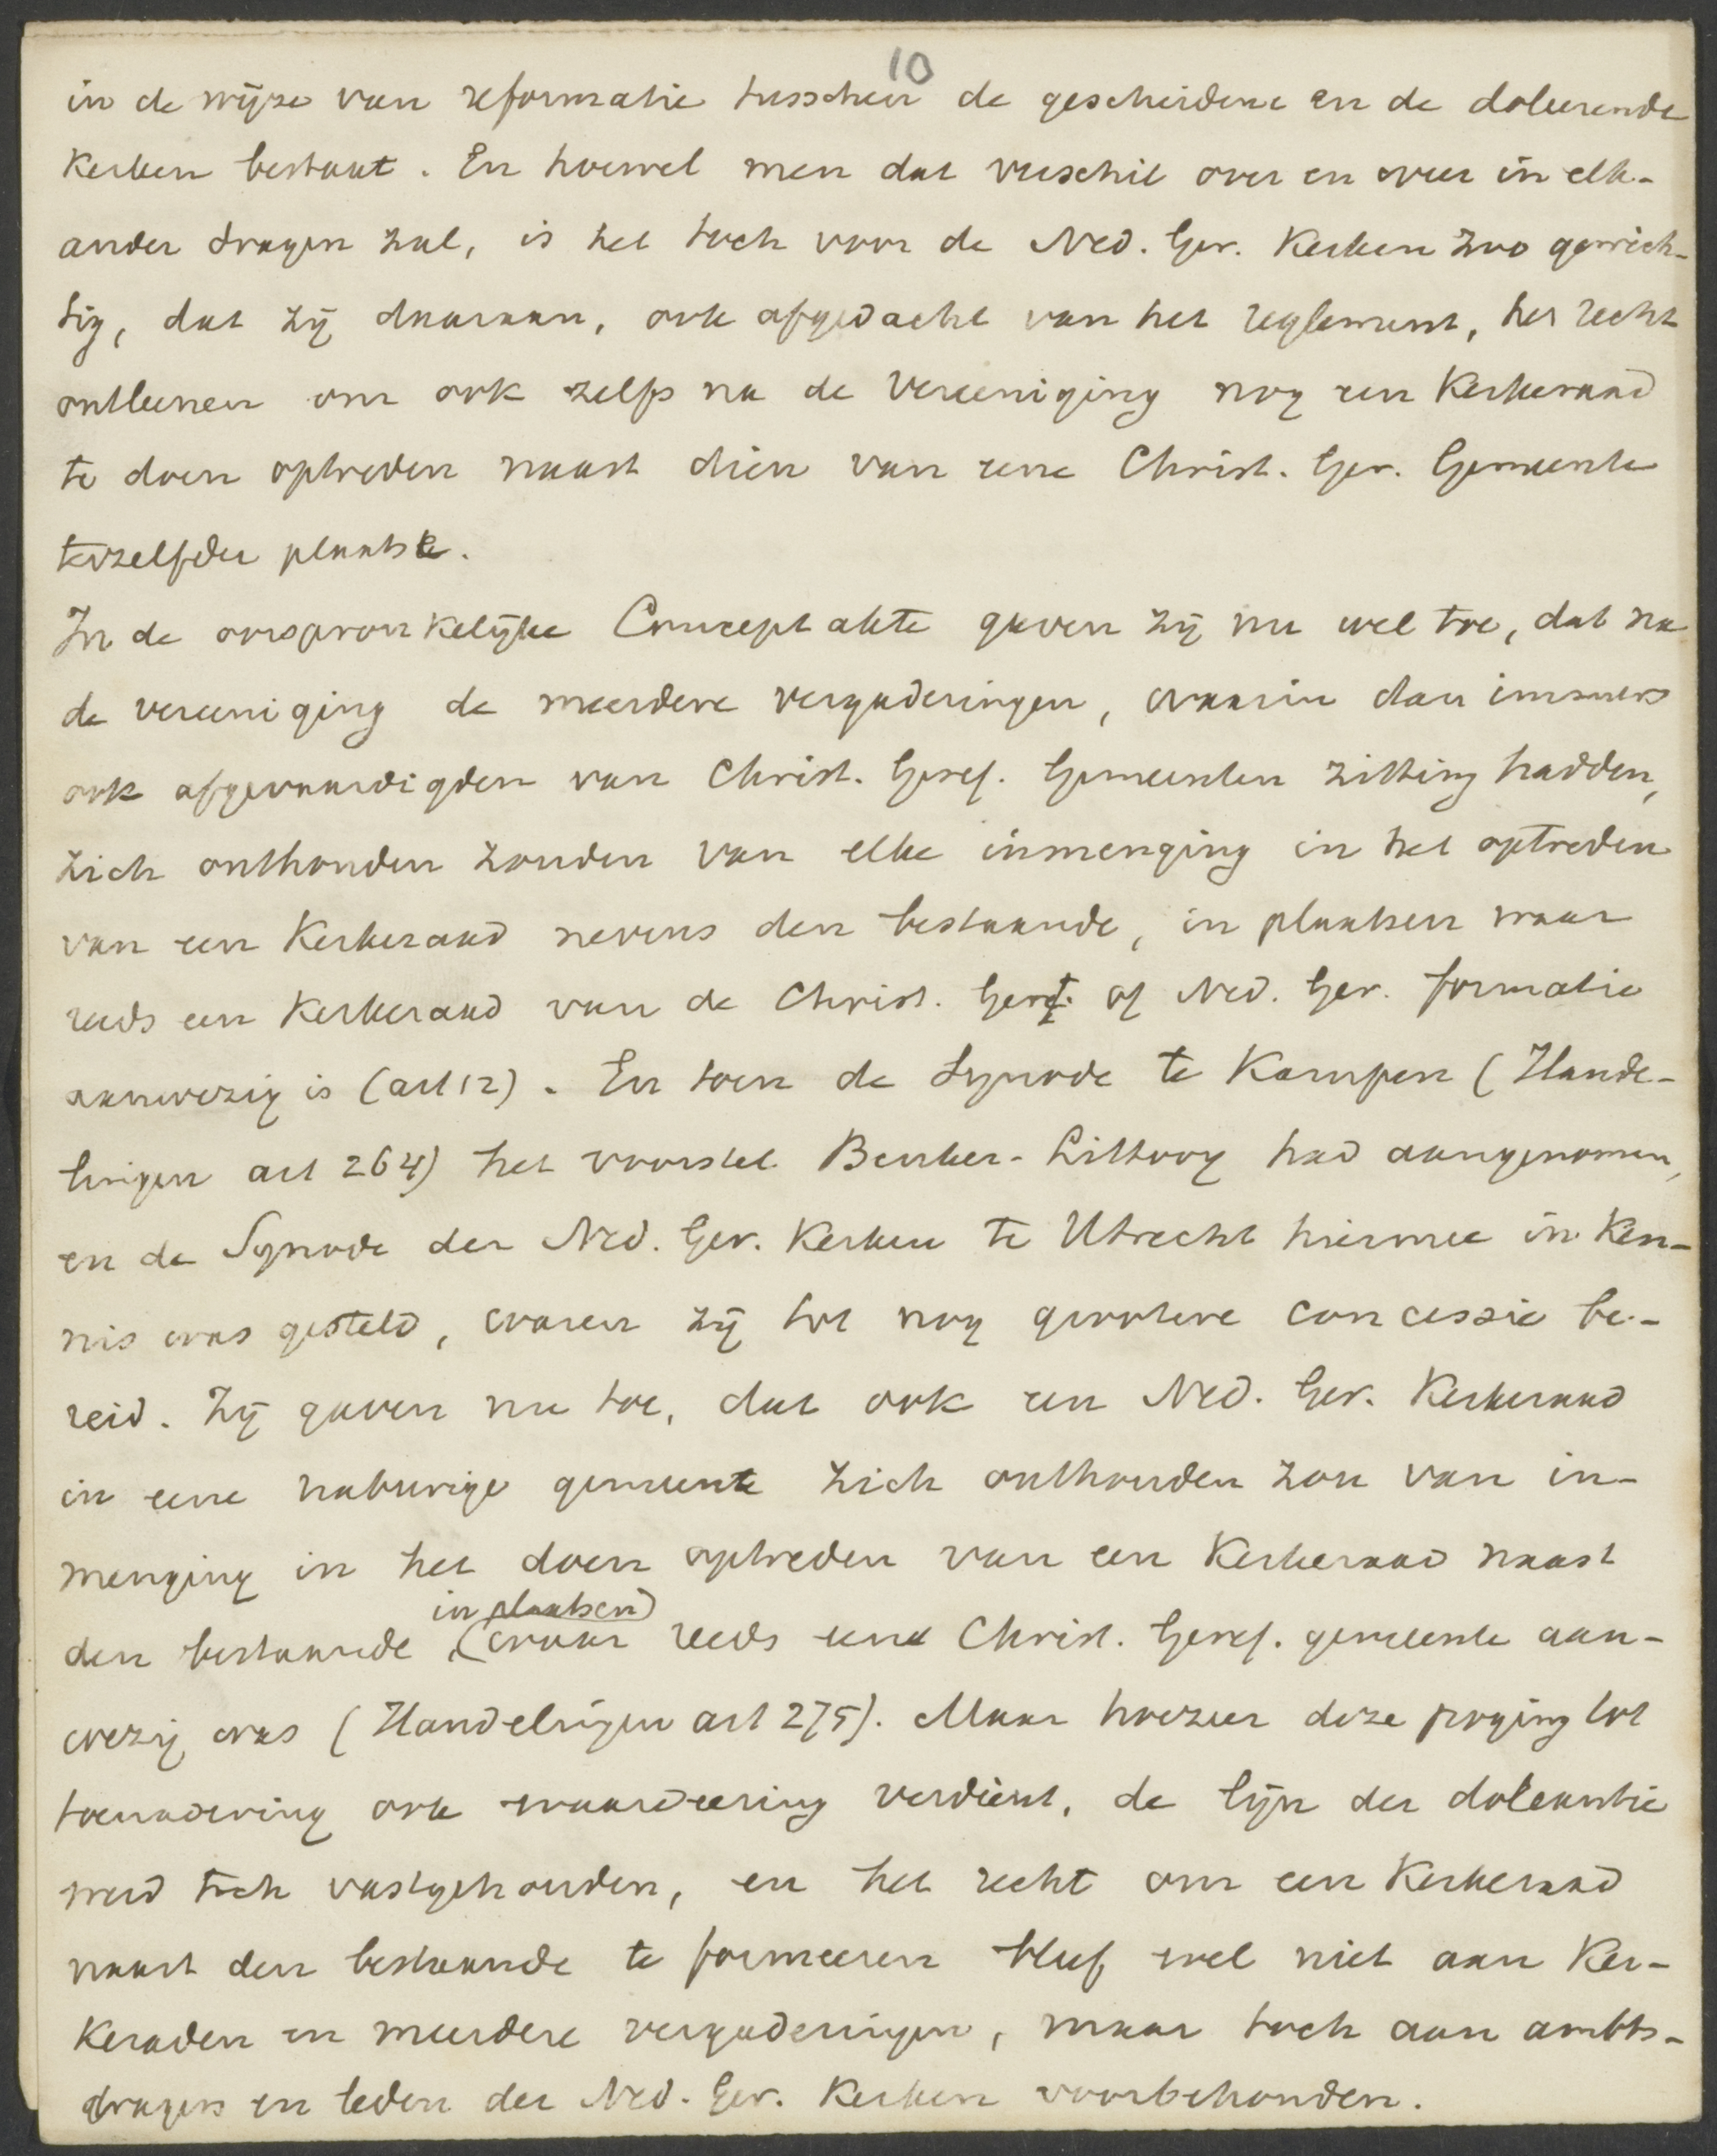 10
in de wijze van reformatie tusschen de gescheidene en de doleerende
Kerken bestaat. En hoewel men dat verschil over en weer in elk-
ander dragen zal, is het toch voor de Ned. Ger. Kerken zoo gewich-
tig, dat zij daaraan, ook afgedacht van het reglement, het recht
ontleenen om ook zelfs na de Vereeniging nog een Kerkeraad
te doen optreden naast dien van eene Christ. Ger. Gemeente
terzelfder plaatse.
In de oorspronkelijke Conceptakte gaven zij nu wel toe, dat na
de vereeniging de meerdere vergaderingen, waarin dan immers
ook afgevaardigden van Christ. Geref. Gemeenten zitting hadden,
zich onthouden zouden van elke inmenging in het optreden
van een Kerkeraad nevens den bestaande, in plaatsen waar
reeds een Kerkeraad van de Christ. Geref. of Ned. Ger. formatie
aanwezig is (art 12). En toen de Synode te Kampen (Hande-
lingen art 264) het voorstel Beuker-Littooy had aangenomen,
en de Synode der Ned. Ger. Kerken te Utrecht hiermee in Ken-
nis was gesteld, waren zij tot nog grootere concessie be-
reid. Zij gaven nu toe, dat ook een Ned. Ger. Kerkeraad
in eene naburige gemeente zich onthouden zou van in-
menging in het doen optreden van een Kerkeraad naast
in plaatsen
den bestaande, (waar reeds eene Christ. Geref. gemeente aan-
wezig was (Handelingen art 275). Maar hoezeer deze poging tot
toenadering ook waardeering verdient, de lijn der doleantie
werd toch vastgehouden, en het recht om een Kerkeraad
naast den bestaande te formeeren bleef wel niet aan Ker-
Keraden en meerdere vergaderingen, maar toch aan ambts-
dragers en leden der Ned. Ger. Kerken voorbehouden.